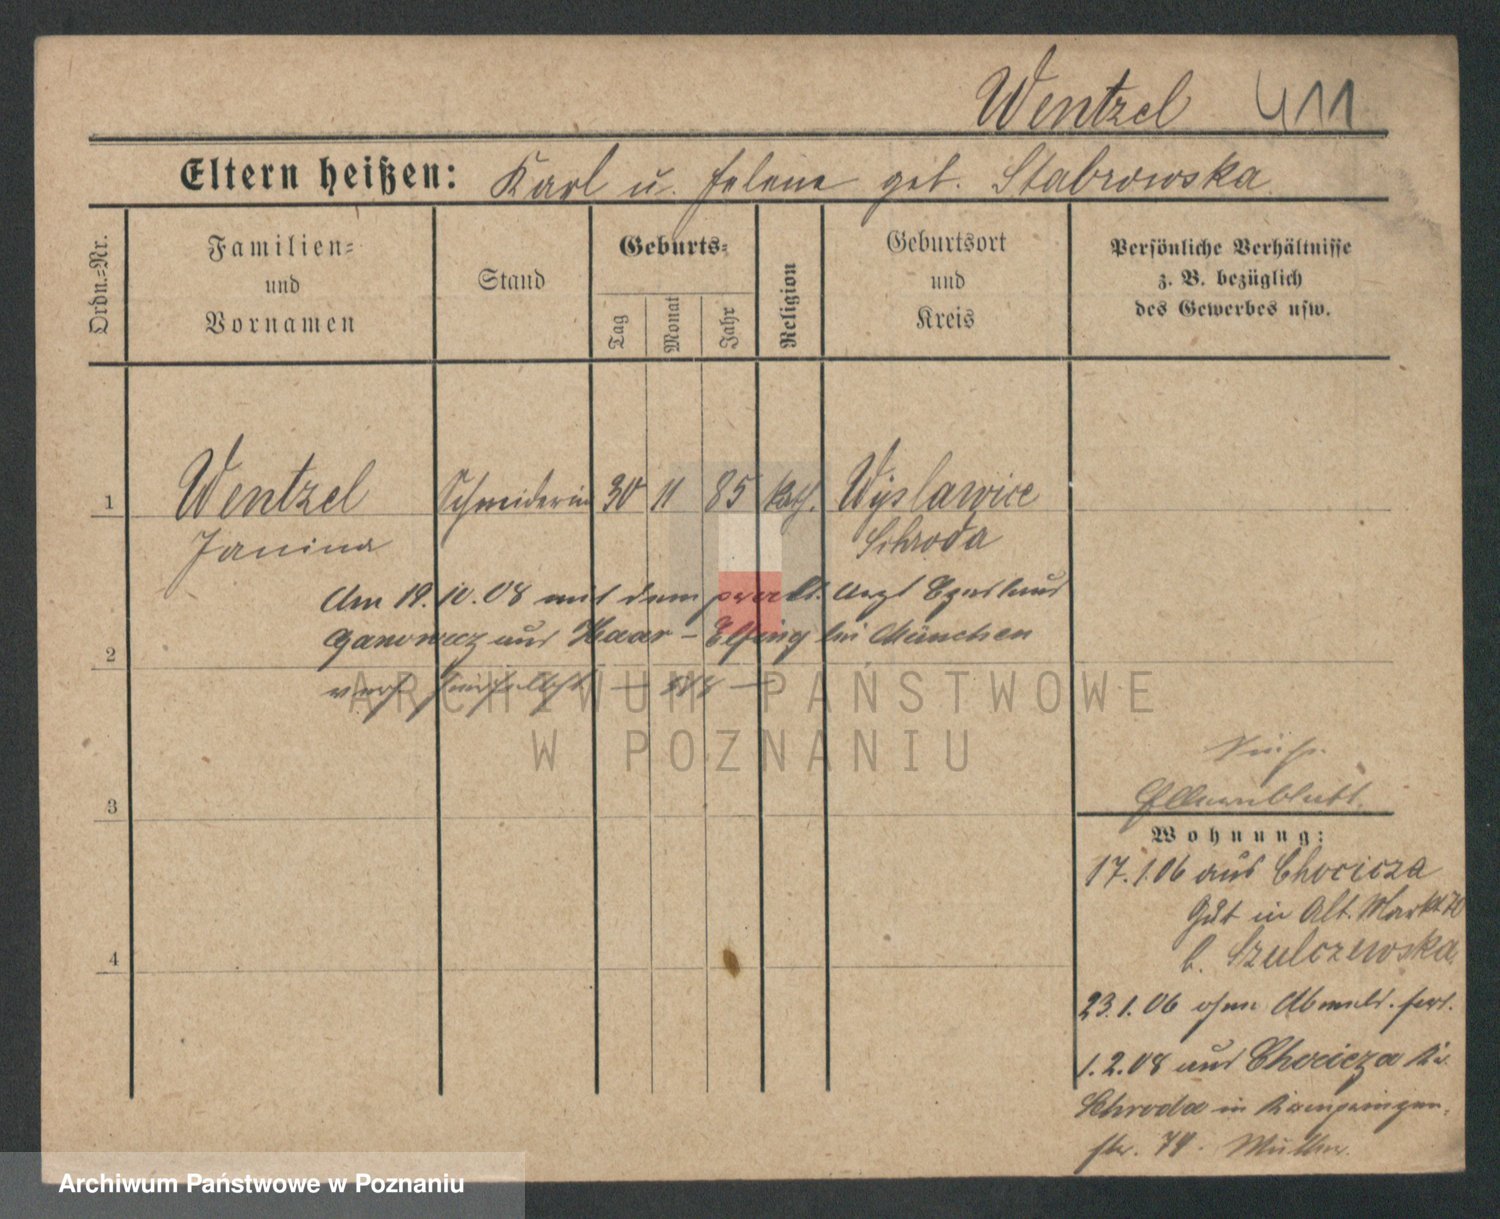 Wentzel 411
Eltern heißen: Karl u. Helene geb. Stabrowska
Ordn.=Nr.
Familien=
und
Vornamen
Stand
Geburts=
Tag
Monat
Jahr
Religion
Geburtsort
und
Kreis
Persönliche Verhältnisse
z. B. bezüglich
des Gewerbes usw.
1 Wentzel Schneiderin 30 11 85 kath. Wyslawice
Janina Schroda
Am 19. 10. 08 mit dem prakt. Arzt
Ganowicz aus Haar - Elfing bei München
2
verh
ARCHIWUM PAŃSTWOWE
W POZNANIU
3
Siehe
Elternblatt.
Wohnung:
17.1.06 aus Chocicza
Gut in Alt. Markt
b. Szulczewska
4
23.1.06 ohne Abmeld. fort.
1.2.08 aus Chocicza Kr.
Schroda in
str. Mutter.
Archiwum Państwowe w Poznaniu